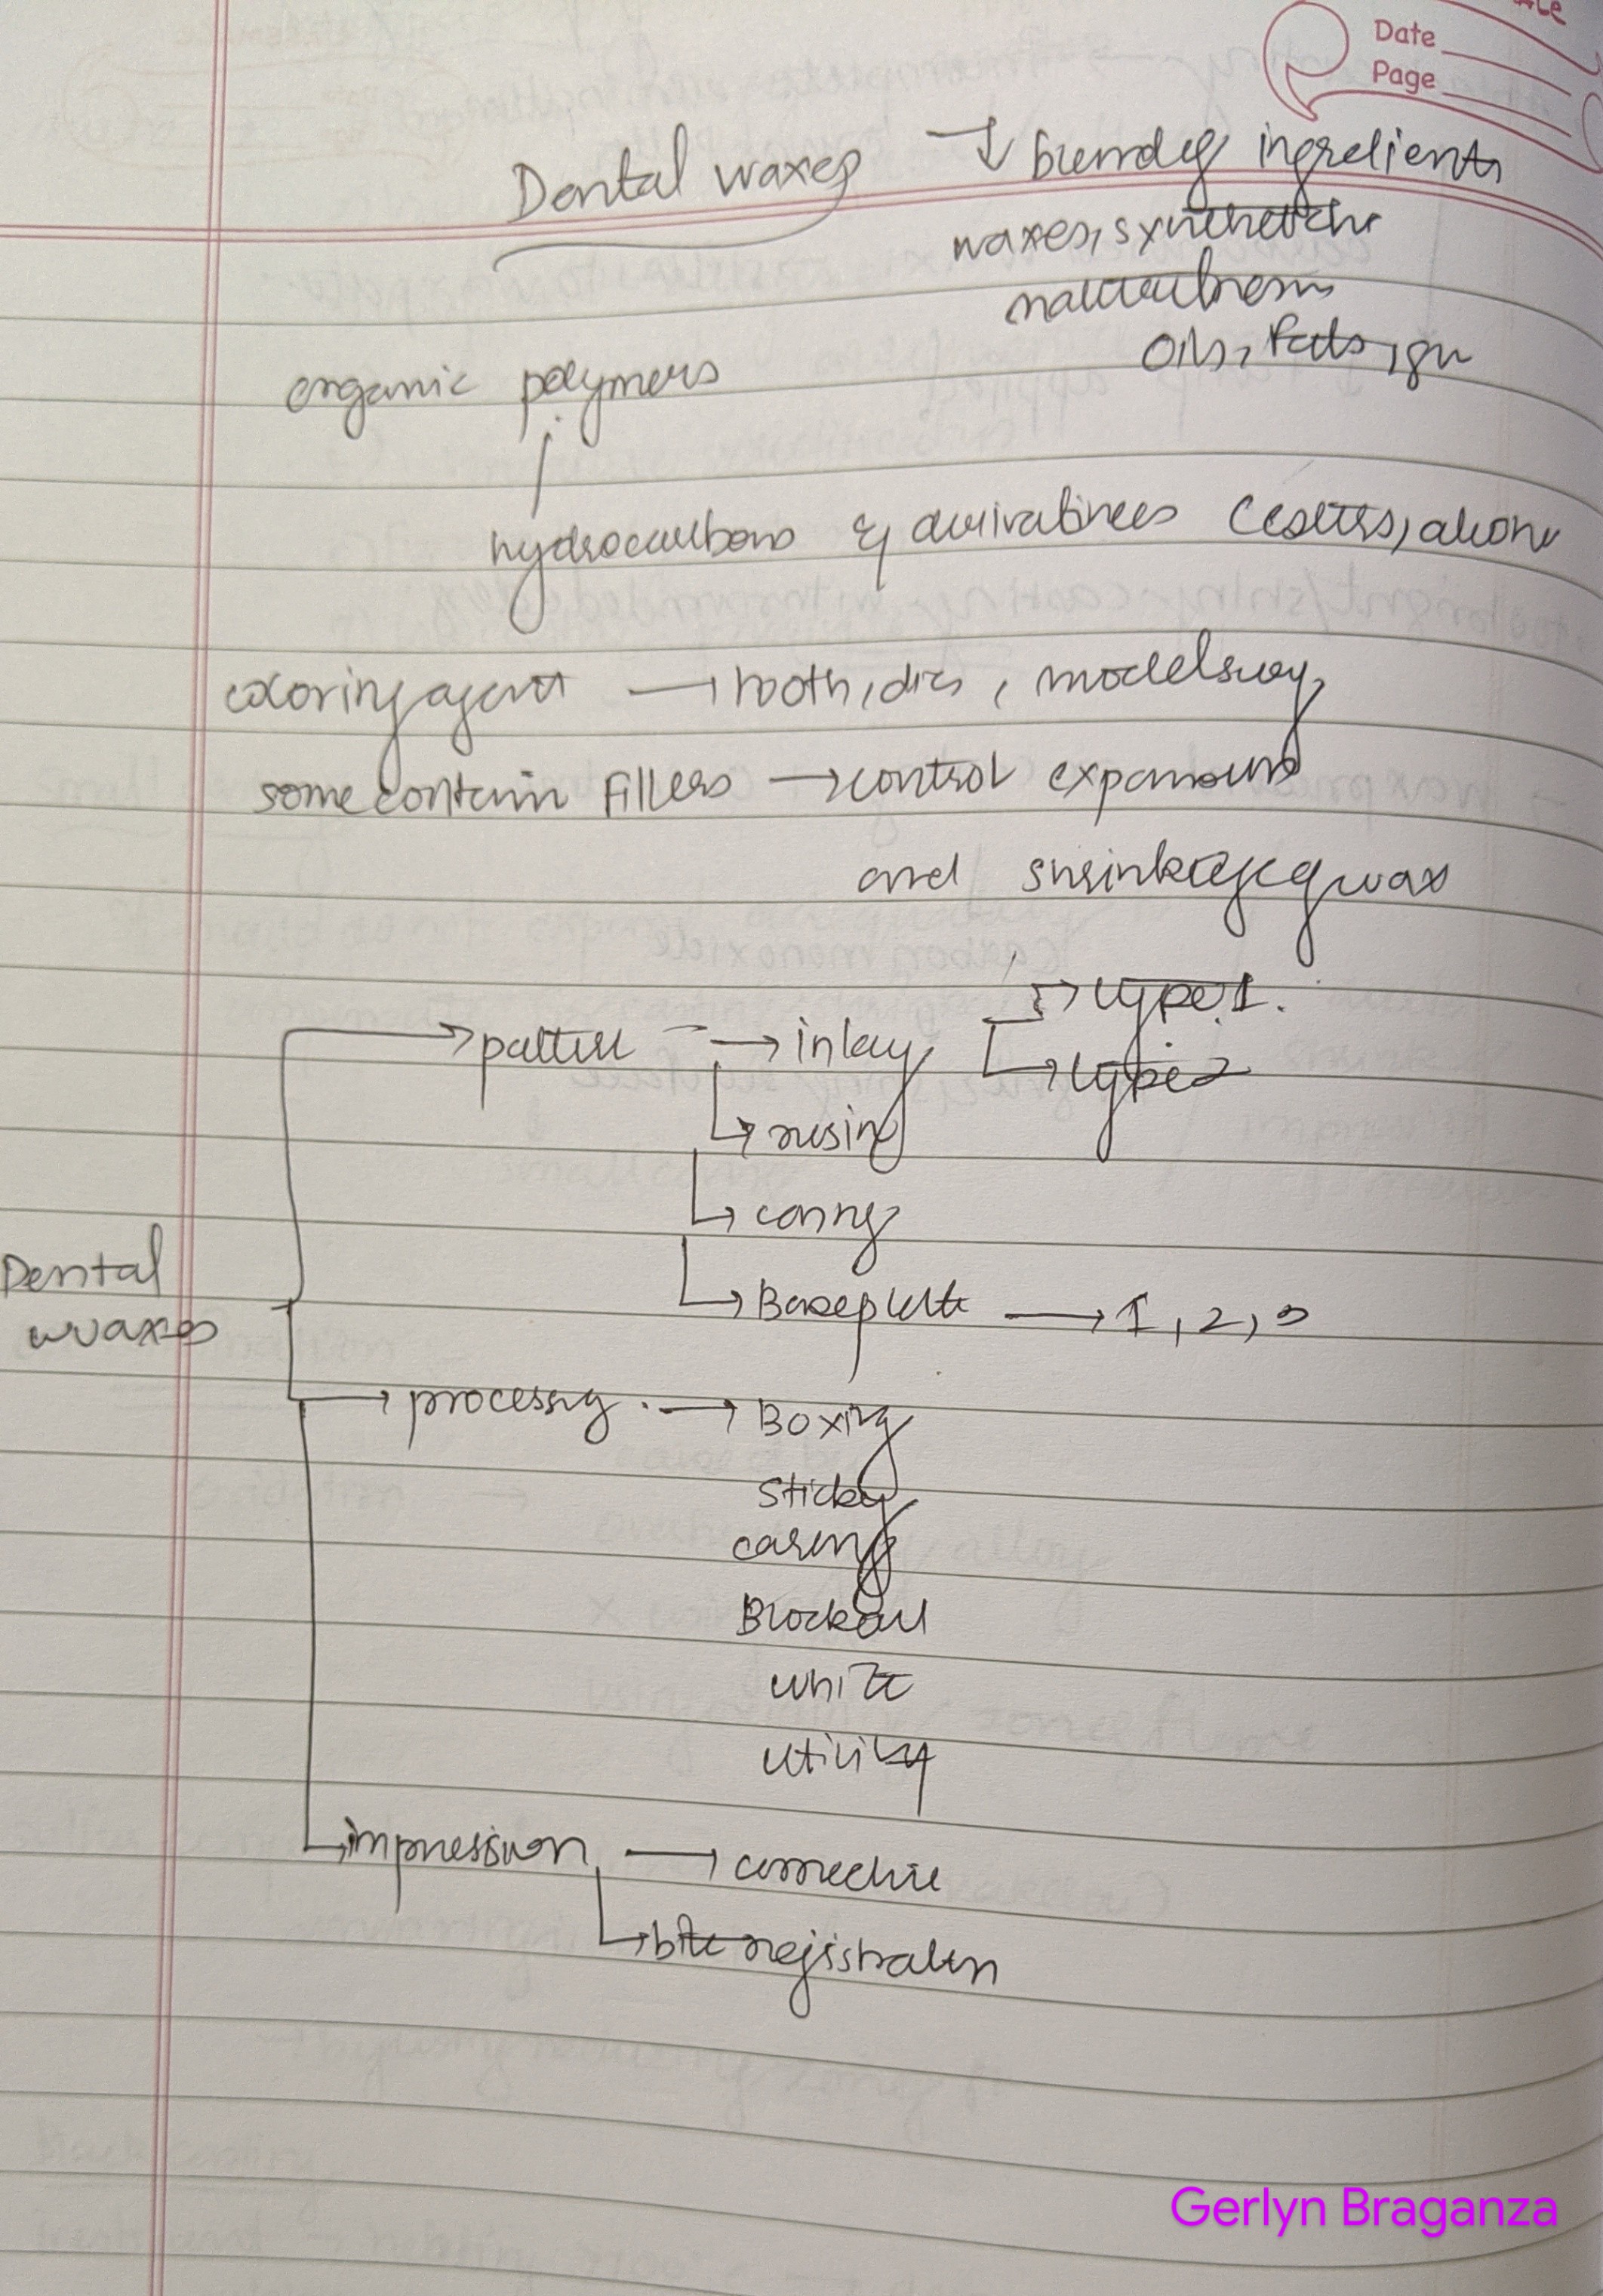 Date
Page
Dental waxes → blending ingredients
waxes, synthetic
natural resins
Oils, fats, gu
organic polymers
hydrocarbons & derivatives (esters, alcoh
coloring agent → tooth, dies, models
some contain Fillers → control expansion
and shrinkage of wax
→ type 1.
→ pattern → inlay
→ type 2
→ resin
→ casting
Dental
waxes
→ Baseplate → 1, 2, 3
→ processing → Boxing
Sticky
carving
Blockout
white
utility
→ impression → corrective
→ bite registration
Gerlyn Braganza